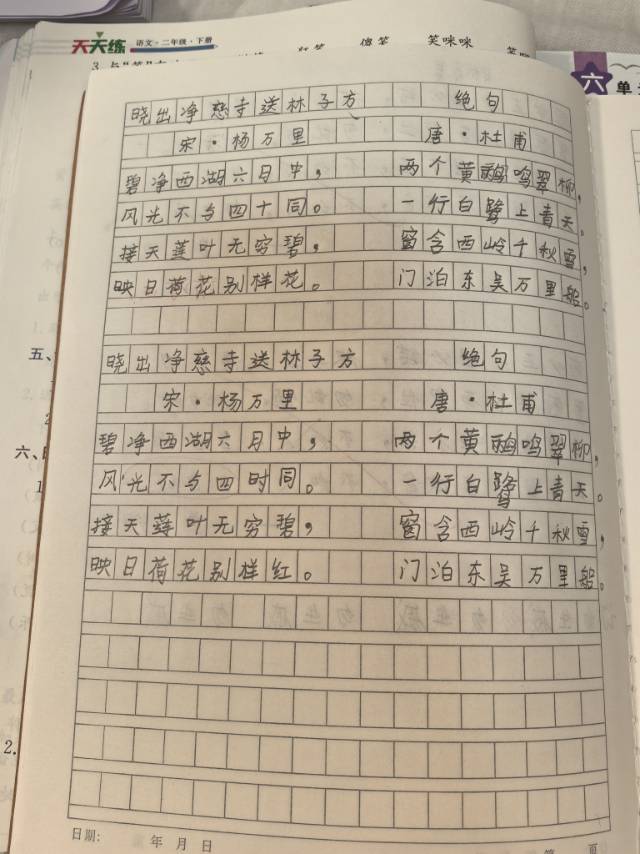 天天练 语文·二年级·下册
傻笑 笑咪咪
六 单
晓出净慈寺送林子方 绝句
宋·杨万里 唐·杜甫
碧净西湖六月中， 两个黄鹂鸣翠柳，
风光不与四十同。 一行白鹭上青天。
接天莲叶无穷碧， 窗含西岭千秋雪，
映日荷花别样花。 门泊东吴万里船。
晓出净慈寺送林子方 绝句
宋·杨万里 唐·杜甫
碧净西湖六月中， 两个黄鹂鸣翠柳，
风光不与四时同。 一行白鹭上青天。
接天莲叶无穷碧， 窗含西岭千秋雪，
映日荷花别样红。 门泊东吴万里船。
五、
六、
2.
日期： 年 月 日
页